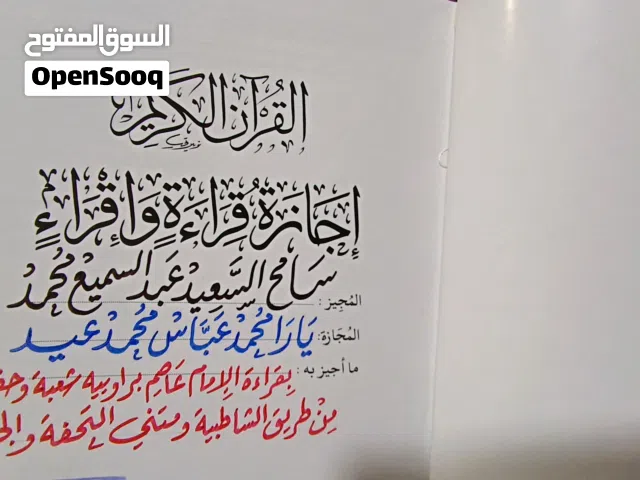 السوق المفتوح
OpenSooq
القرآن الكريم
إِجَازَةُ قِرَاءَةٍ وَإِقْرَاءٍ
المُجيز: سامح السَّعيد عبد السميع محمد
المُجازة: يارا محمد عبَّاس محمد عيد
ما أجيز به: بقراءة الإمام عاصم براوييه شعبة
مِنْ طريق الشاطبية ومتني التحفة